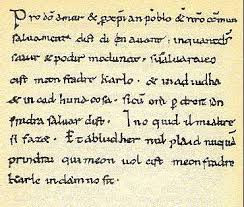 Pro dō amur & p xpīan poblo & nrō cōmun
saluament dist di en auant. inquantdſ
sauir & podir medunat. siſaluaraieo
cist meon fradre Karlo. & in ad iudha
& in cad huna cosa. sicū om p dreit son
fradra saluar dist. Ino quid il mialtre
si fazet. Et abludher nul plaid nūquā
prindrai qui meon uol cist meonfradre
Karle in damno sit.